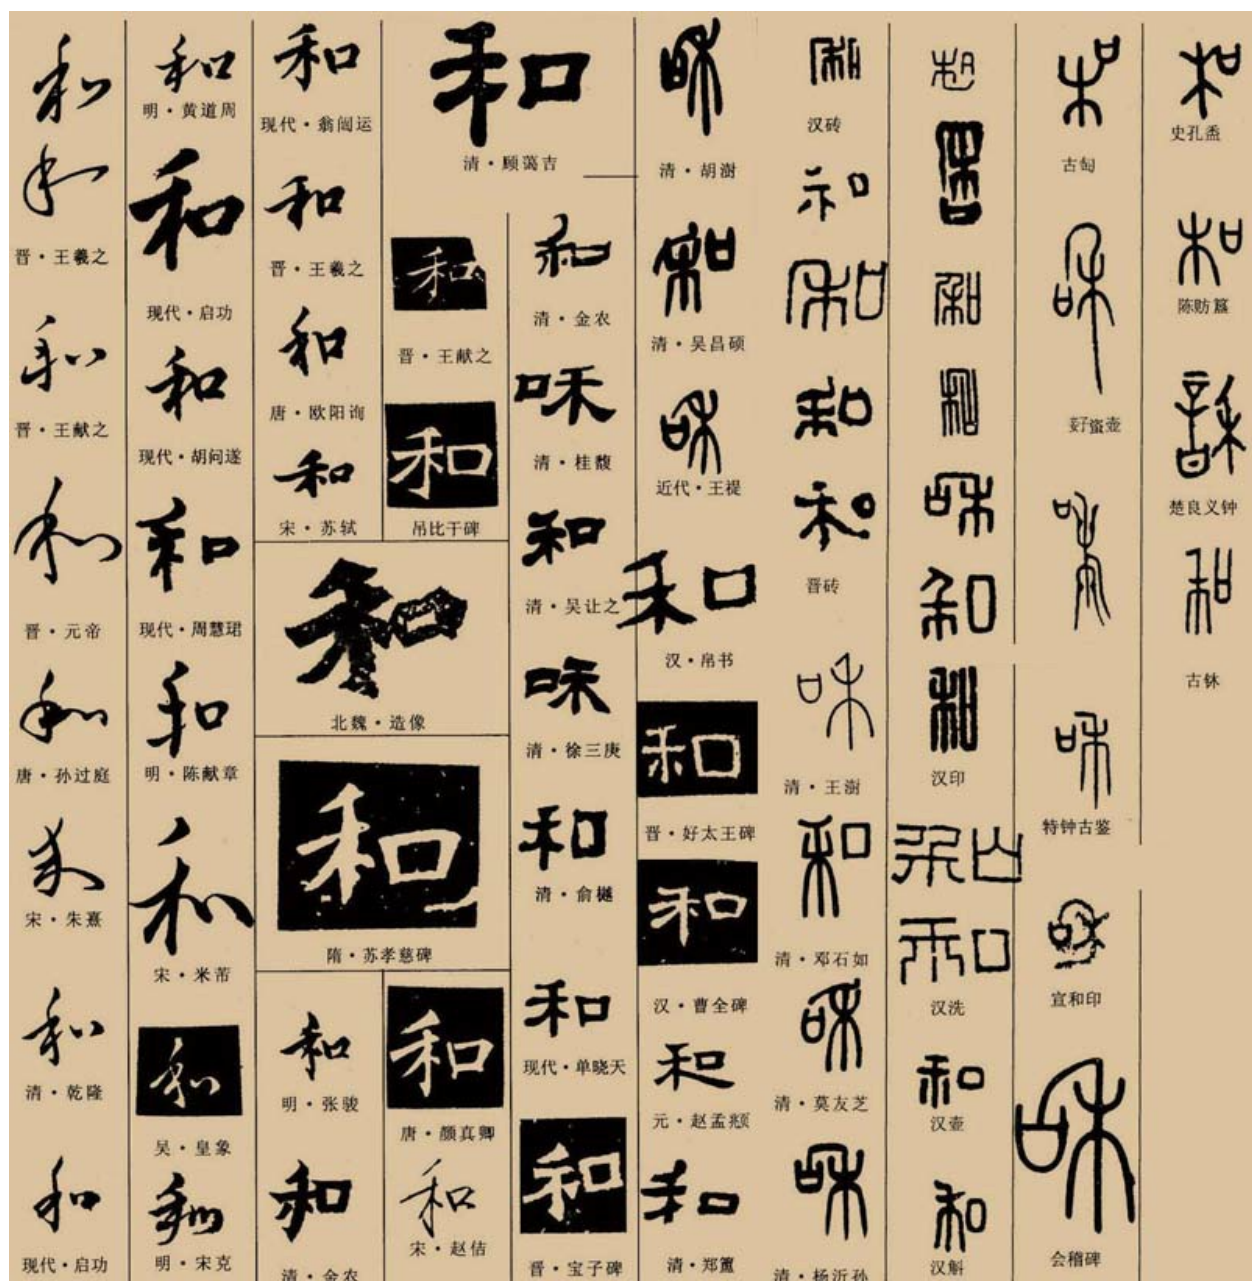 和
和
晋·王羲之
和
晋·王献之
和
晋·元帝
和
唐·孙过庭
和
宋·朱熹
和
清·乾隆
和
现代·启功
和
明·黄道周
和
现代·启功
和
现代·胡问遂
和
现代·周慧珺
和
明·陈献章
和
宋·米芾
和
吴·皇象
和
明·宋克
和
现代·翁闿运
和
晋·王羲之
和
唐·欧阳询
和
宋·苏轼
和
清·顾蔼吉
和
晋·王献之
和
吊比干碑
和
北魏·造像
和
隋·苏孝慈碑
和
明·张骏
和
清·金农
和
唐·颜真卿
和
宋·赵佶
和
清·金农
和
清·桂馥
和
清·吴让之
和
清·徐三庚
和
清·俞樾
和
现代·单晓天
和
晋·宝子碑
和
清·胡澍
和
清·吴昌硕
和
近代·王禔
和
汉·帛书
和
晋·好太王碑
和
汉·曹全碑
和
元·赵孟頫
和
清·郑簠
和
汉砖
和
和
和
和
晋砖
和
清·王澍
和
清·邓石如
和
清·莫友芝
和
清·杨沂孙
和
和
和
和
和
和
和
汉印
和
和
汉洗
和
汉壶
和
汉斛
和
古匋
和
好蚉壶
和
和
特钟古鉴
和
宣和印
和
会稽碑
和
史孔盉
和
陈昉簋
和
楚良义钟
和
古鉥